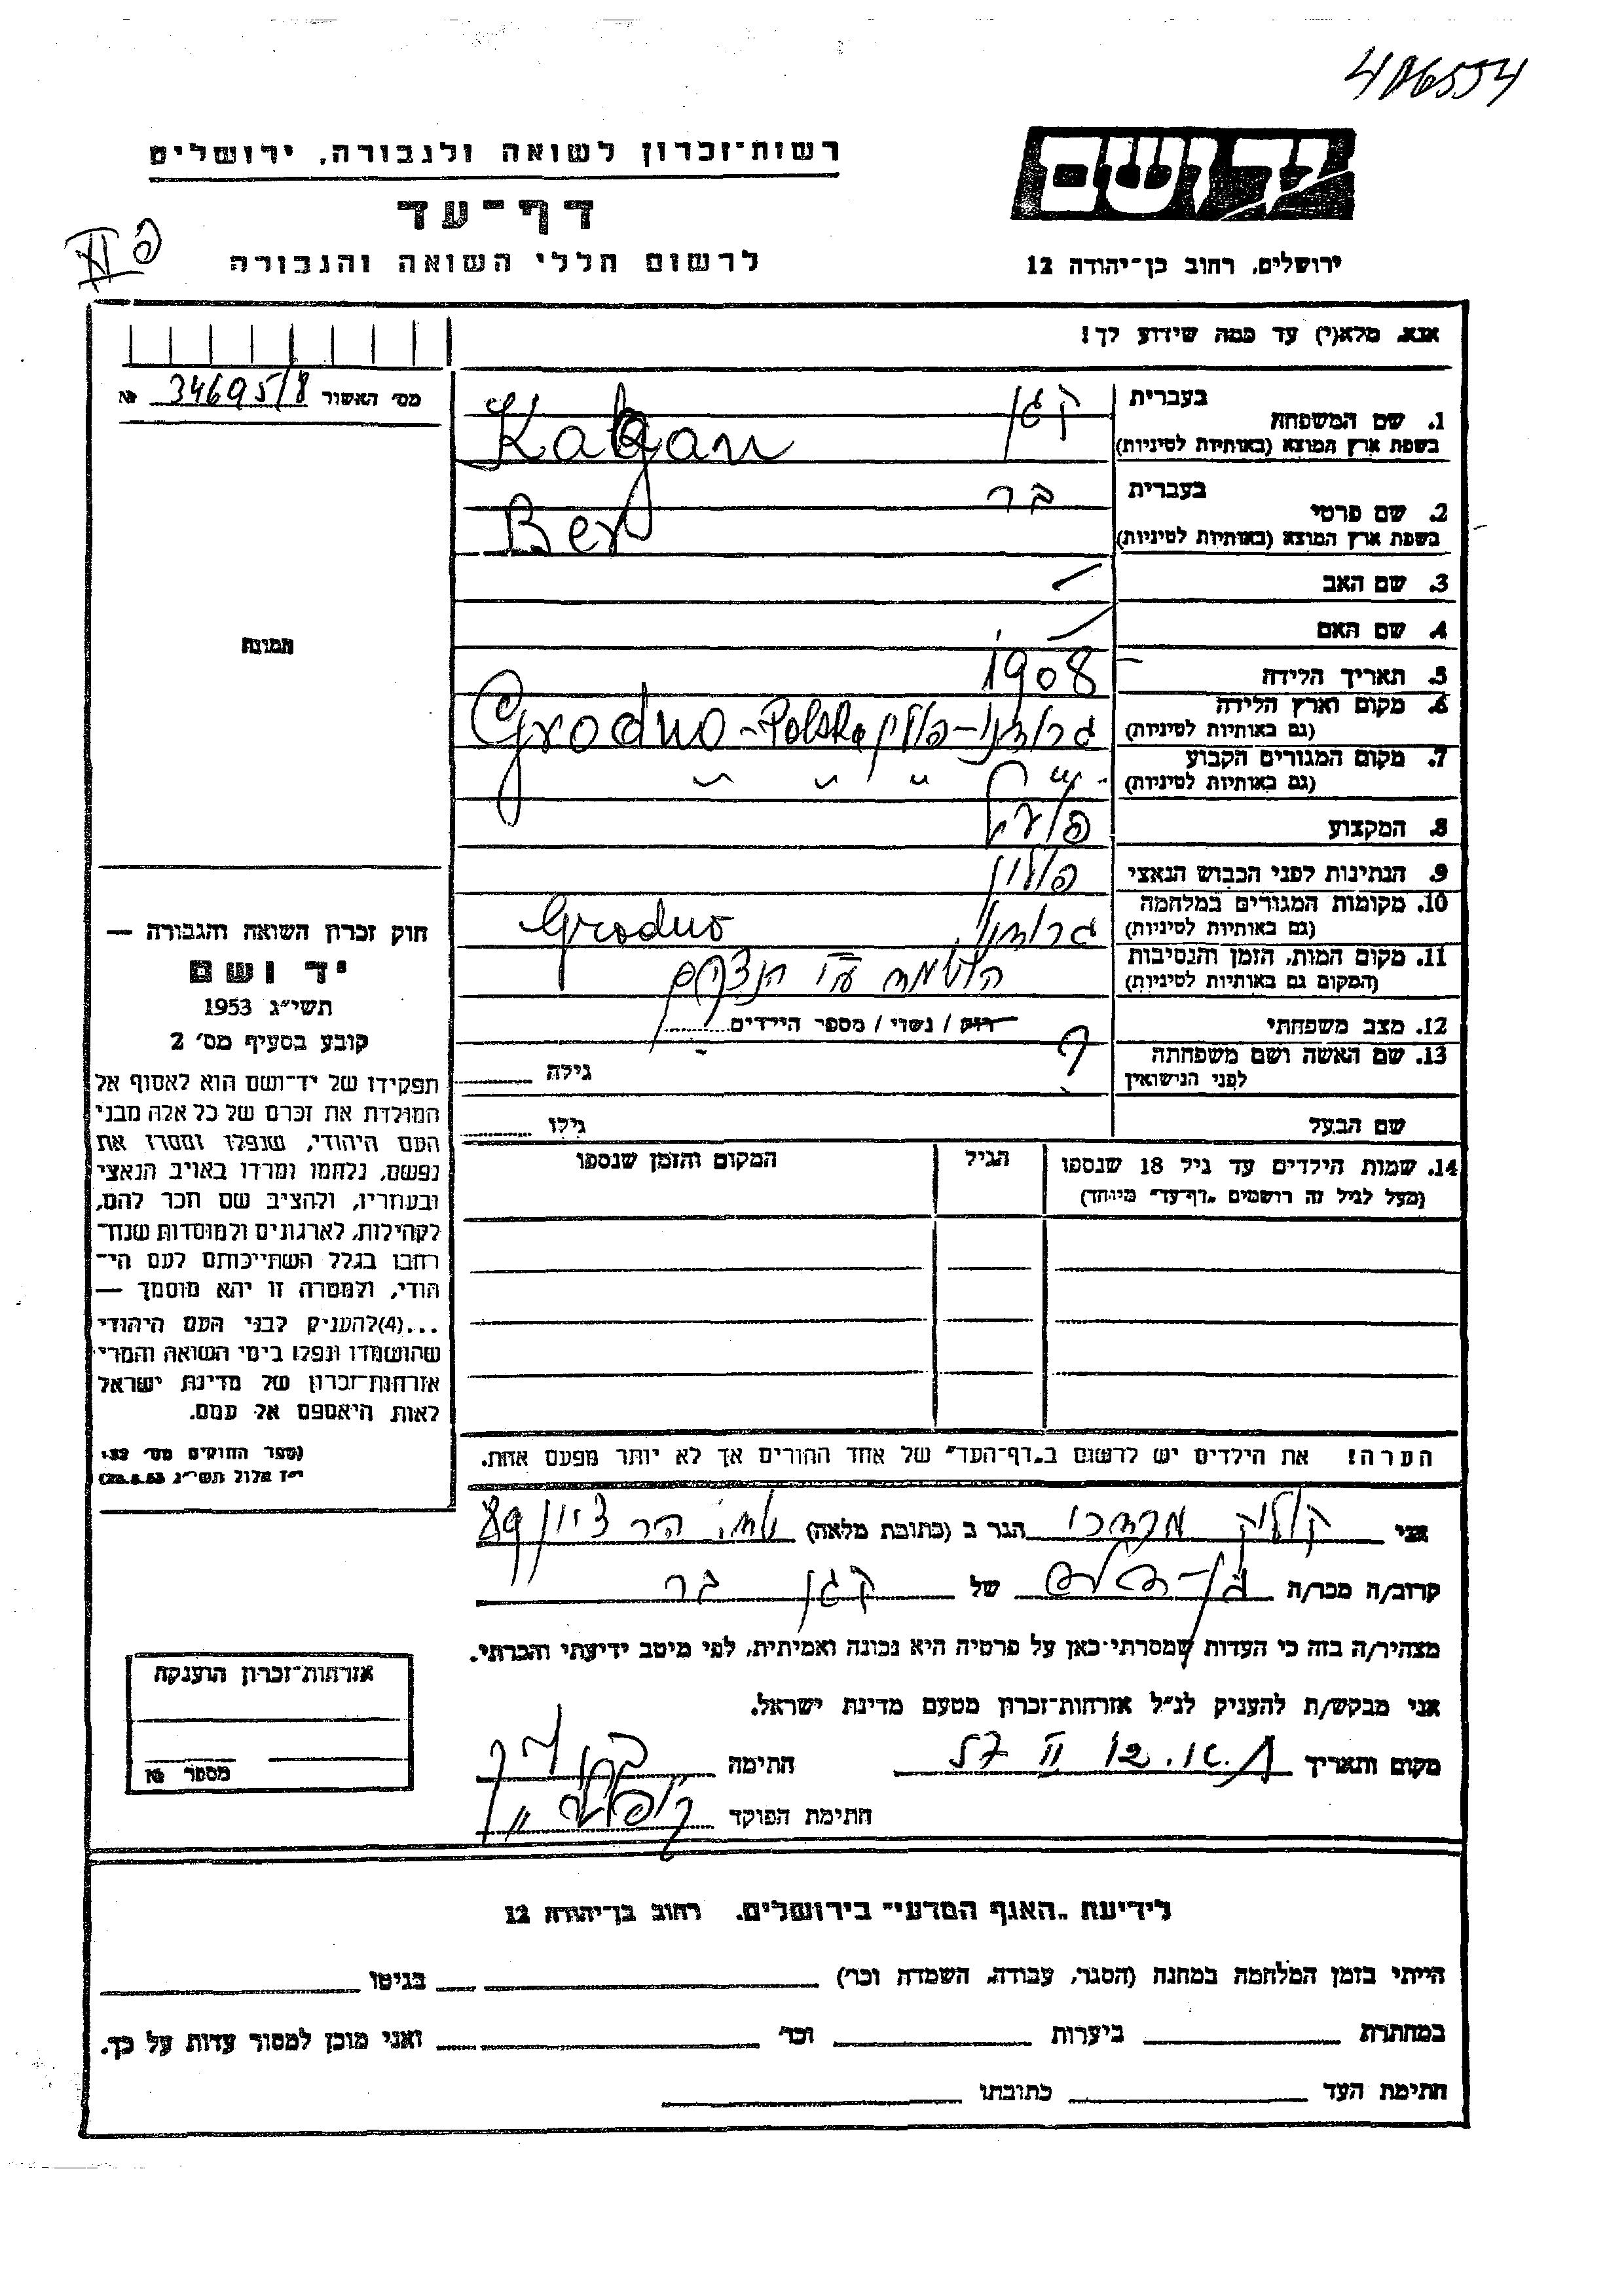 406554
יד ושם
רשות־זכרון לשואה ולגבורה, ירושלים
דף־עד
לרשום חללי השואה והגבורה
ירושלים, רחוב בן־יהודה 12
אנא, מלא(י) עד כמה שידוע לך!
מס׳ האשור 34695/8 №
בעברית קגן
1. שם המשפחה
בשפת ארץ המוצא (באותיות לטיניות) Kagan
בעברית בר
2. שם פרטי
בשפת ארץ המוצא (באותיות לטיניות) Ber
3. שם האב
4. שם האם
תמונה
5. תאריך הלידה 1908
6. מקום וארץ הלידה
(גם באותיות לטיניות) גרודנו - פולין Grodno - Polska
7. מקום המגורים הקבוע
(גם באותיות לטיניות) " " " "
8. המקצוע פועל
9. הנתינות לפני הכבוש הנאצי פולין
10. מקומות המגורים במלחמה
(גם באותיות לטיניות) גרודנו Grodno
11. מקום המות, הזמן והנסיבות
(המקום גם באותיות לטיניות) הושמד ע"י הנצים
12. מצב משפחתי רוק / נשוי / מספר הילדים
13. שם האשה ושם משפחתה
לפני הנישואין גילה
שם הבעל גילו
14. שמות הילדים עד גיל 18 שנספו הגיל המקום והזמן שנספו
(מעל לגיל זה רושמים „דף־עד״ מיוחד)
הערה! את הילדים יש לרשום ב„דף־העד״ של אחד ההורים אך לא יותר מפעם אחת.
חוק זכרון השואה והגבורה —
יד ושם
תשי״ג 1953
קובע בסעיף מס׳ 2
תפקידו של יד־ושם הוא לאסוף אל
המולדת את זכרם של כל אלה מבני
העם היהודי, שנפלו ומסרו את
נפשם, נלחמו ומרדו באויב הנאצי
ובעוזריו, ולהציב שם וזכר להם,
לקהילות, לארגונים ולמוסדות שנח־
רבו בגלל השתייכותם לעם הי־
הודי, ולמטרה זו יהא מוסמך —
...(4)להעניק לבני העם היהודי
שהושמדו ונפלו בימי השואה והמרי
אזרחות־זכרון של מדינת ישראל
לאות היאספם אל עמם.
(ספר החוקים מס׳ 132
י״ז אלול תשי״ג 28.8.53)
אני קולוק מרדכי הגר ב (כתובת מלאה) הר ציון 89
קרוב/ה מכר/ה של קגן בר
מצהיר/ה בזה כי העדות שמסרתי כאן על פרטיה היא נכונה ואמיתית, לפי מיטב ידיעתי והכרתי.
אני מבקש/ת להעניק לנ״ל אזרחות־זכרון מטעם מדינת ישראל.
מקום ותאריך ת.א. 12 II 57 חתימה
חתימת הפוקד
אזרחות־זכרון הוענקה
מספר №
לידיעת „האגף המדעי״ בירושלים, רחוב בן־יהודה 12
הייתי בזמן המלחמה במחנה (הסגר, עבודה, השמדה וכו׳) בגיטו
במחתרת ביערות וכו׳ ואני מוכן למסור עדות על כך.
חתימת העד כתובתו